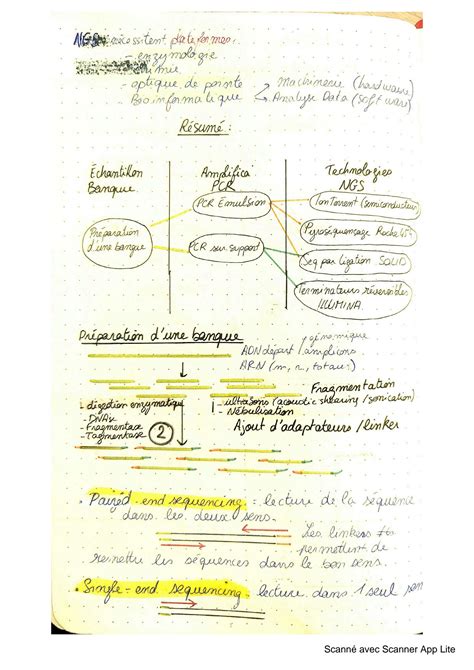 NGS nécessitent plateformes.
- enzymologie
- chimie
- optique de pointe
- Bioinformatique
Machinerie (hardware)
Analyse Data (software)
Résumé :
Échantillon
Banque
Amplifica
PCR
Technologies
NGS
Préparation
d'une banque
PCR Emulsion
PCR sur support
IonTorrent (semiconducteur)
Pyroséquençage Roche 454
Seq par ligation SOLID
Terminateurs réversibles
ILLUMINA
Préparation d'une banque
génomique
ADN départ / amplicons
ARN (m, r, totaux)
Fragmentation
- digestion enzymatique
- DNAse
- Fragmentase
- Tagmentase
- ultrasons (acoustic shearing / sonication)
- Nébulisation
2
Ajout d'adaptateurs / linker
• Paired-end sequencing = lecture de la séquence
dans les deux sens.
Les linkers
permettent de
remettre les séquences dans le bon sens.
• Single-end sequencing = lecture dans 1 seul sen
Scanné avec Scanner App Lite